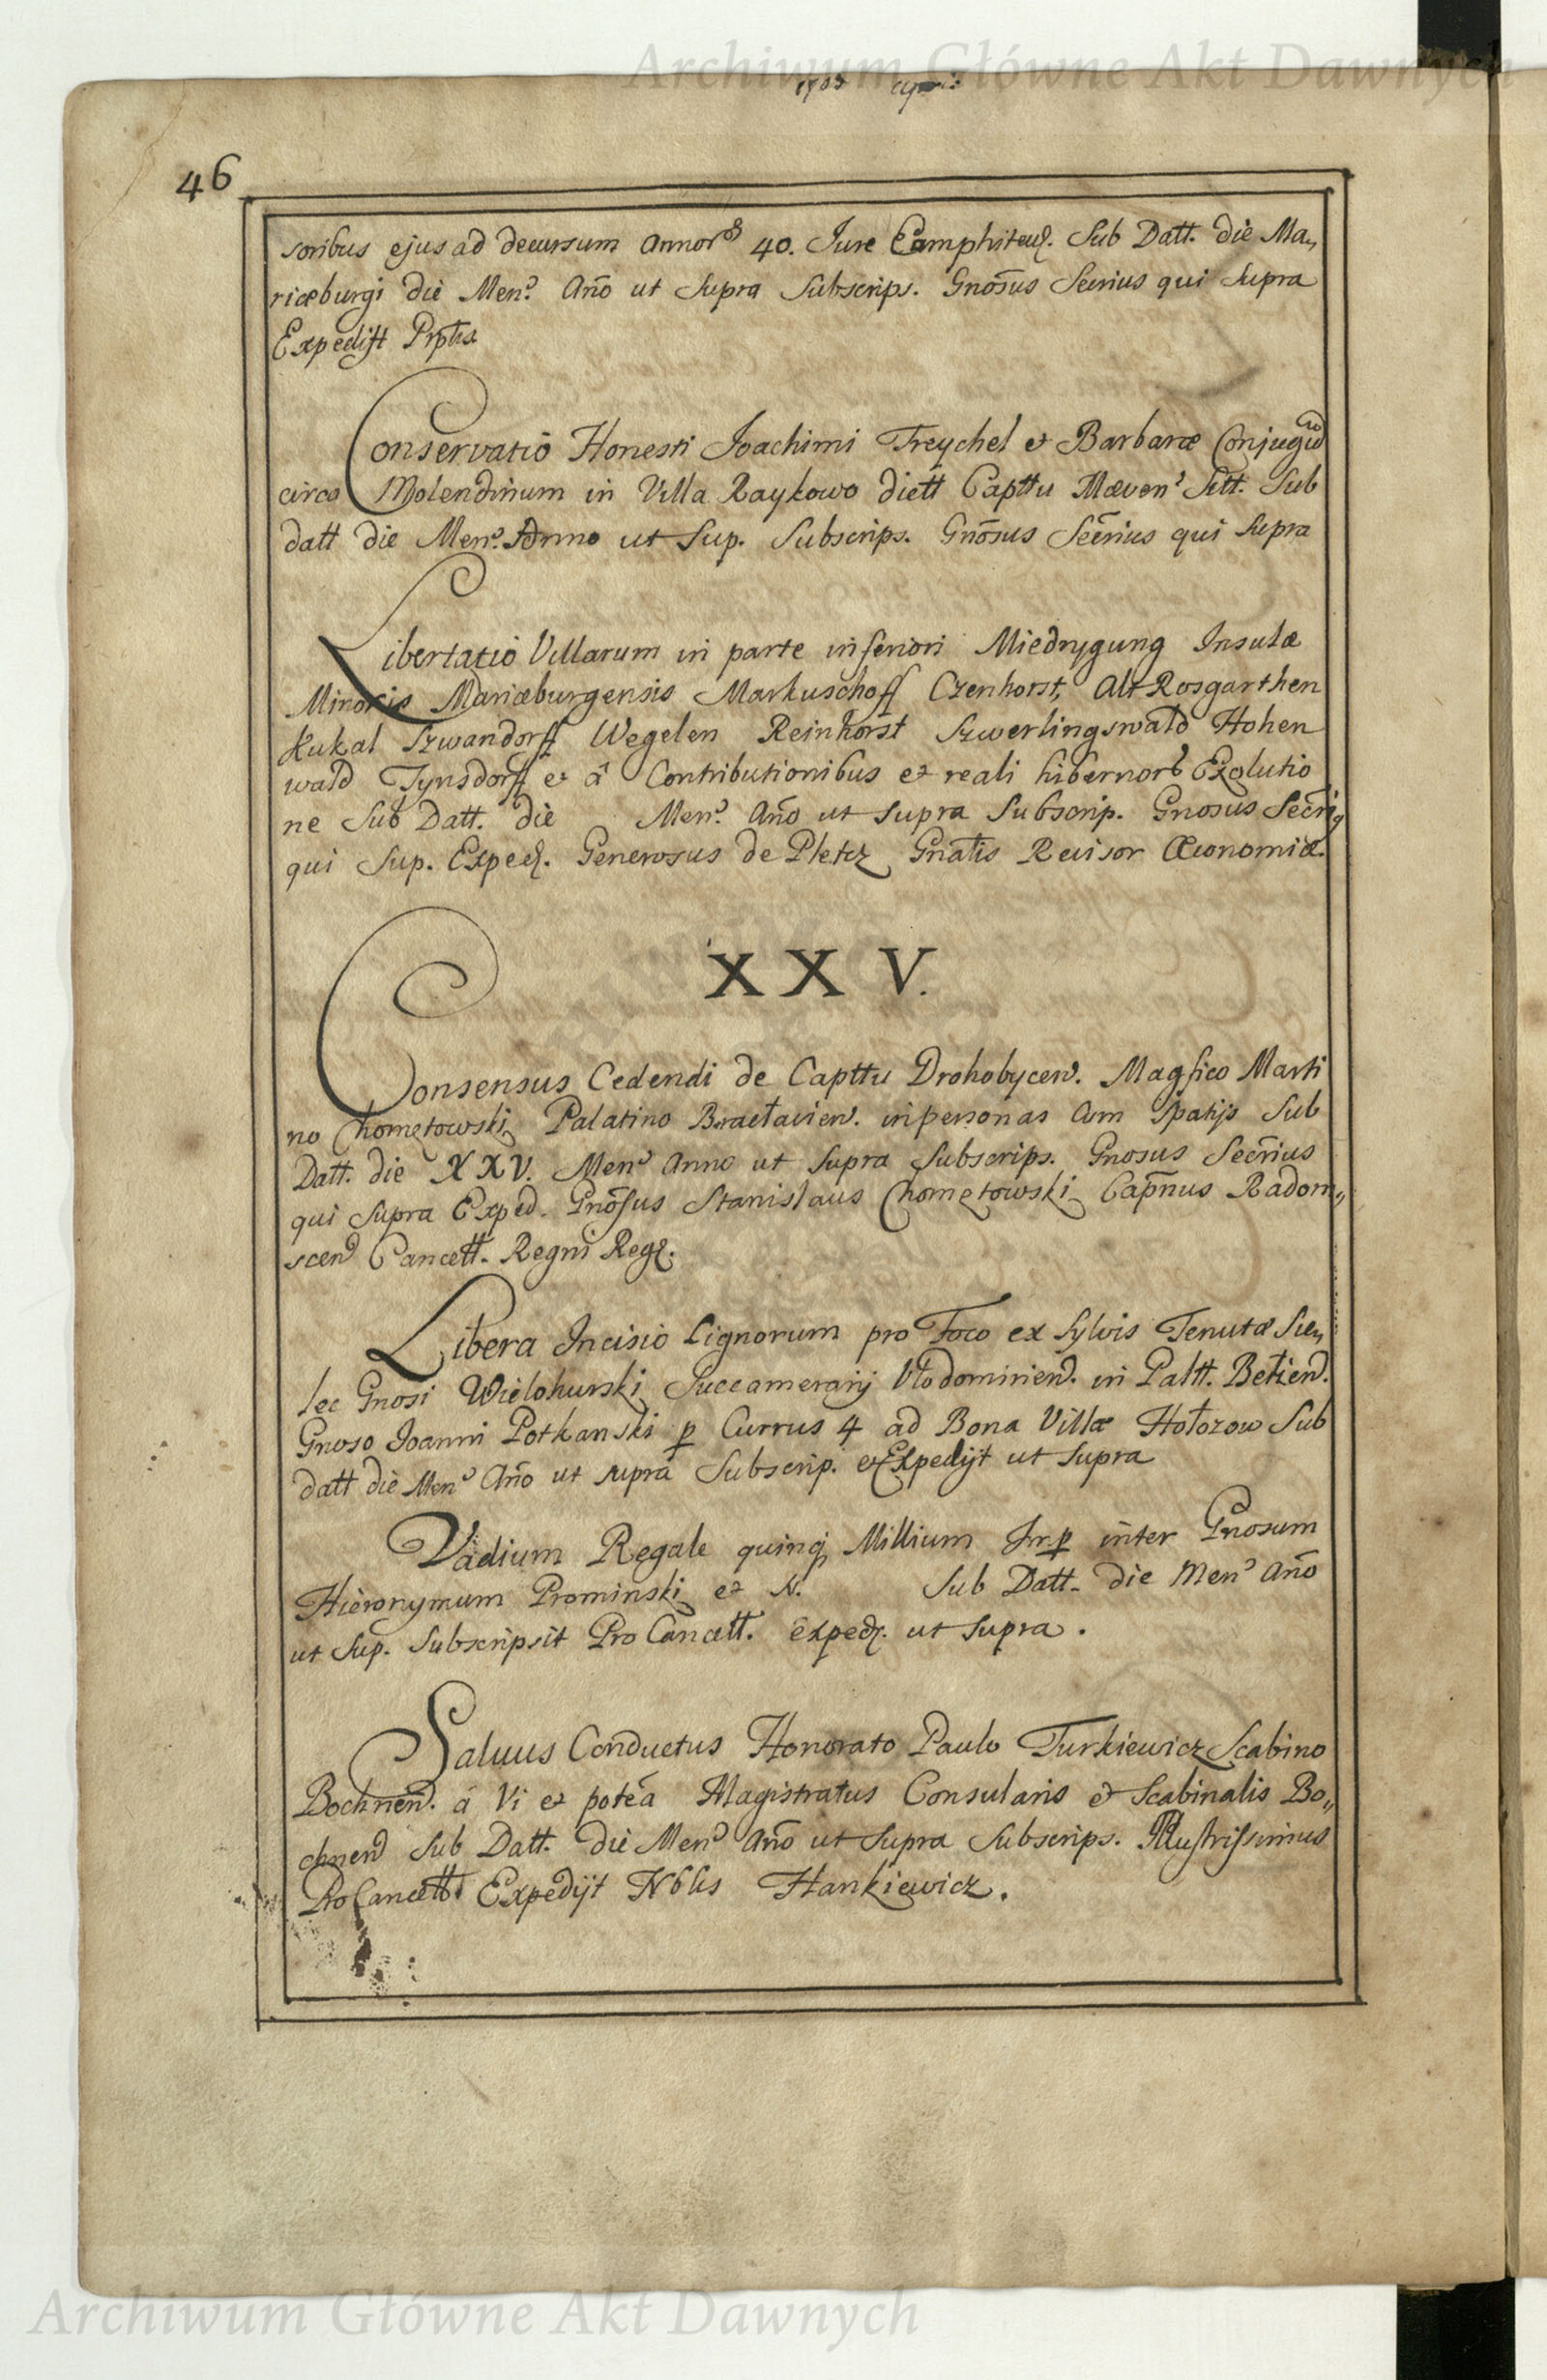 Archiwum Główne Akt Dawnych
1703
46
soribus ejus ad decursum Annor. 40. Jure Eamphiteu. Sub Datt. die Ma,,
riæburgi die Men. Año ut Supra Subscrips. Gnõsus Secrius qui Supra
Expedijt Prptis
Conservatiõ Honesti Joachimi Treychel et Barbaræ Conjugũ
circa Molendinum in Villa Raykowo dictt Capttu Mæven. Sitt. Sub
datt die Men. Anno ut Sup. Subscrips. Gnõsus Secr̃ius qui Supra
Libertatio Villarum in parte inferiori Miedrygung Insulæ
Minoris Mariæburgensis Markuschoff Czenhorst, Alt Rosgarthen
Kukal Szwandorff Wegelen Reinhorst Szwerlingswald Hohen
wald Tynsdorff et â Contributionibus et reali hibernor. Exolutio
ne Sub Datt. die Men. Año ut Supra Subscrip. Gnosus Secri,
qui Sup. Exped. Generosus de Pletcz Gñalis Revisor Œconomiæ.
XXV.
Consensus Cedendi de Capttu Drohobycen. Magfico Marti
no Chomętowski Palatino Bractavien. in personas Cum Spatijs Sub
Datt. die XXV. Men. Anno ut Supra Subscrips. Gnosus Secr̃ius
qui Supra Exped. Gnõsus Stanislaus Chomętowski Cap̃nus Radom,,
scen. Cancell. Regni Reg.
Libera Incisio Lignorum pro Foco ex Sylvis Tenutæ Sie,,
lec Gnosi Wielohurski Succamerarij Vłodomirien. in Paltt. Bełzen.
Gnoso Joanni Potkanski p Currus 4 ad Bona Villæ Hołozow Sub
datt die Men. Año ut supra Subscrip. et Expedijt ut Supra
Vadium Regale quinq Millium Imp inter Gnosum
Hieronymum Prominski et N. Sub Datt. die Men. Año
ut Sup. Subscripsit Pro Cancell. exped. ut Supra.
Salvus Conductus Honorato Paulo Turkiewicz Scabino
Bochnen. á Vi et poteã Magistratus Consularis et Scabinalis Bo,,
chnen. Sub Datt. die Men. Año ut Supra Subscrips. Illustrissimus
ProCancell. Expedijt Nblis Hankiewicz.
Archiwum Główne Akt Dawnych